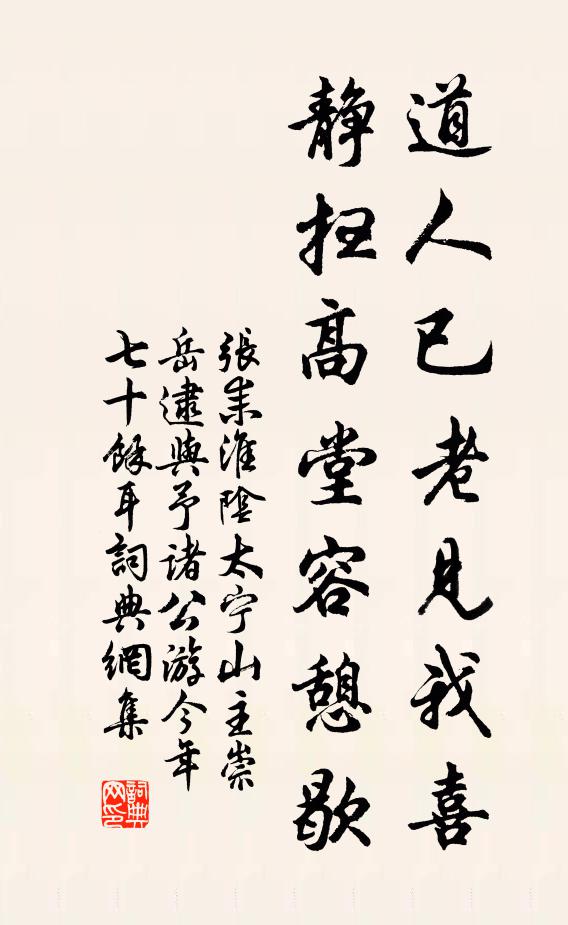 道人已老見我喜
静掃高堂容憩歇
張耒淮陰太宁山主崇
岳逮與予諸公游今年
七十餘耳詞典網集
詞典网印